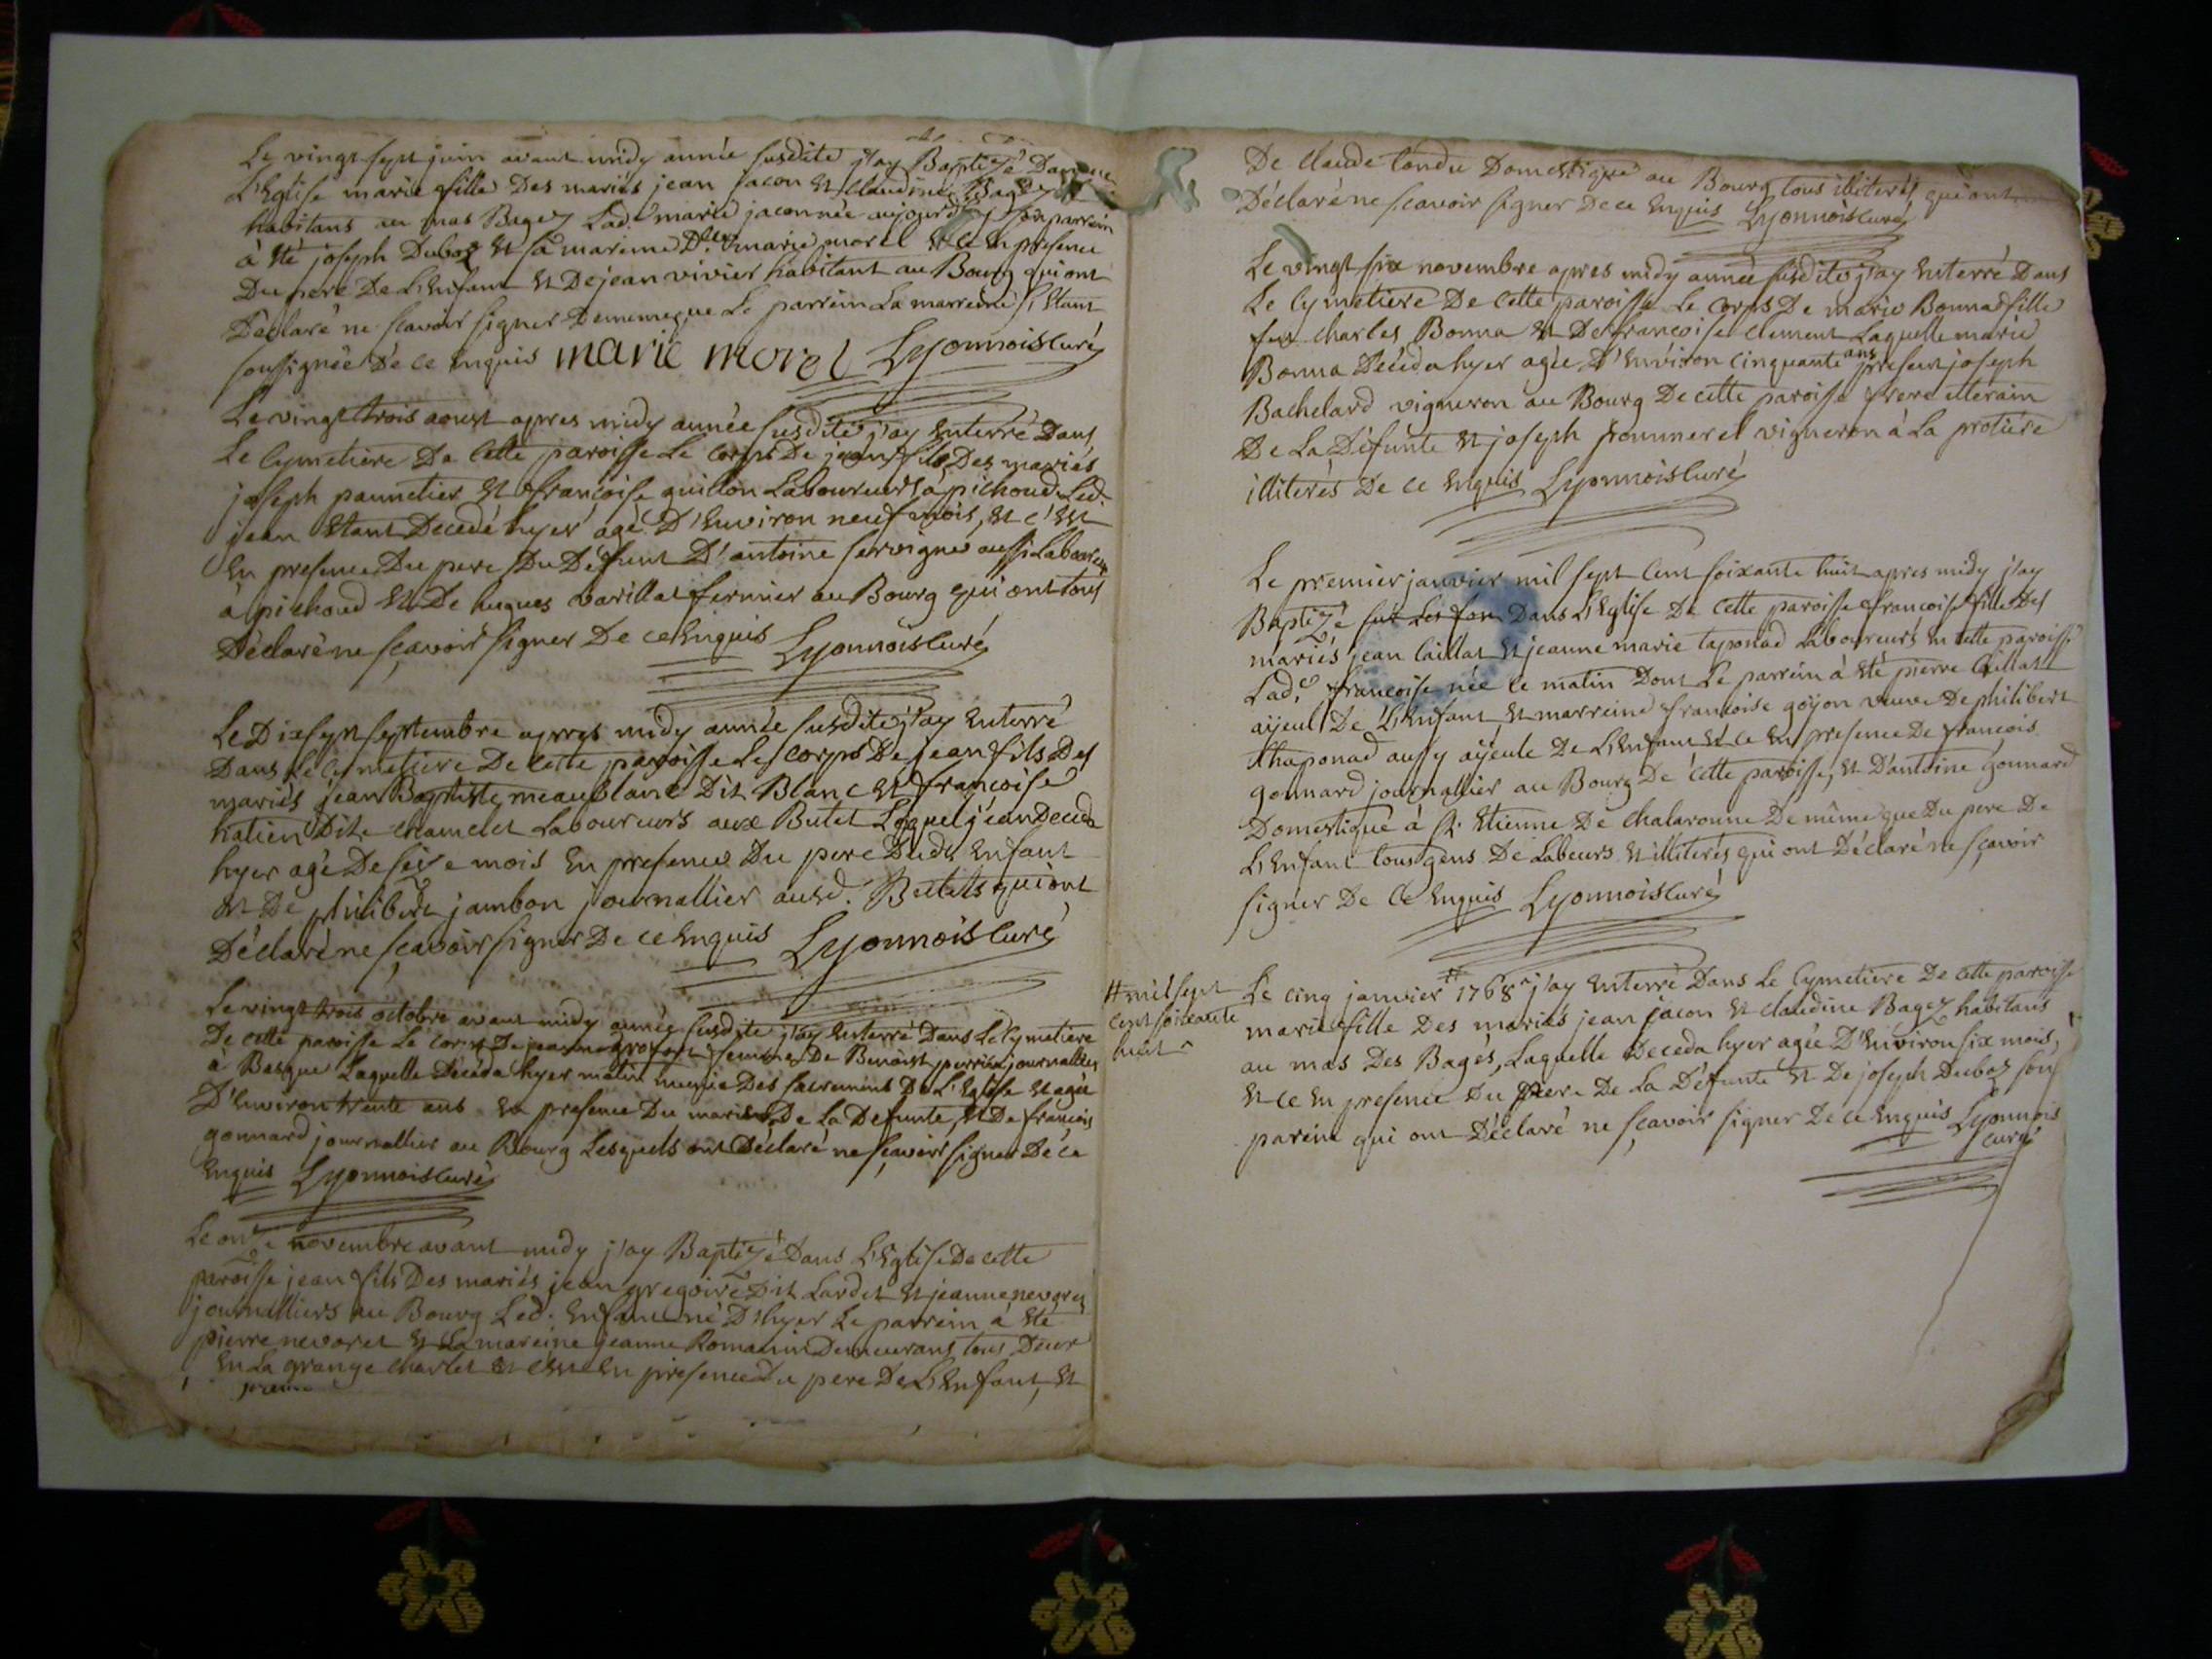 Le vingt sept juin avant midy année susdite j'ay Baptizé Dans
L'Eglise marie fille Des mariés jean jacon Et Claudine Bagez
habitans au mas Bagez Lad.e marie jacon née aujourd'huy son parrein
à Eté joseph Duboz Et sa mareine D.lle marie morel Et ce En presence
Du pere De L'Enfant Et De jean vivier habitant au Bourg qui ont
Déclaré ne sçavoir signer De meme que Le parrein La marreine s'Etant
soussignée De ce Enquis marie morel Lyonnois curé
Le vingt trois aoust apres midy année susdite j'ay Enterré Dans
Le Cymetiere De Cette paroisse Le Corps De jean fils Des mariés
joseph pannetier Et françoise guillon Laboureurs à pichoud Led.
jean Etant Decedé hyer agé D'Environ neuf mois, Et c'Est
En presence Du pere Du Défunt D'antoine servigne aussi Laboureur
à pichoud Et De hugues varillat fermier au Bourg qui ont tous
Déclaré ne sçavoir signer De ce Enquis Lyonnois curé
Le Dix sept septembre apres midy année susdite j'ay Enterré
Dans Le Cymetiere De Cette paroisse Le Corps De jean fils Des
mariés jean Baptiste meaublanc Dit Blanc Et françoise
hatien Dite chamelet Laboureurs aux Butet Lequel jean Deceda
hyer agé De seize mois En presence Du pere Dud. Enfant
Et De philibert jambon journallier aud. Butets qui ont
Déclaré ne sçavoir signer De ce Enquis Lyonnois Curé
Le vingt trois octobre avant midy année susdite j'ay Enterré Dans Le Cymetiere
De cette paroisse Le Corps De jeanne femme De Benoist perrin journallier
à Basque Laquelle Décéda hyer matin munie Des sacremens De L'Eglise Et agée
D'Environ trente ans En presence Du mari De La Defunte, Et De françois
gonnard journallier au Bourg Lesquels ont Déclaré ne sçavoir signer De ce
Enquis Lyonnois curé
Le onze novembre avant midy j'ay Baptizé Dans L'Eglise De cette
paroisse jean fils Des mariés jean gregoire Dit Lardet Et jeanne nevoret
journalliers au Bourg Led. Enfant né D'hyer Le parrein à Eté
pierre nevoret Et La mareine jeanne Romanin Demeurans tous Deux
En La grange charlet Et c'Est En presence Du pere De L'Enfant, Et
De Claude tondu Domestique au Bourg tous illiterés qui ont
Déclaré ne sçavoir signer De ce Enquis Lyonnois curé
Le vingt six novembre apres midy année susdite j'ay Enterré Dans
Le Cymetiere De Cette paroisse Le Corps De marie Bonna fille
feu charles Bonna Et De francoise clement Laquelle marie
Bonna Décéda hyer agée D'Environ Cinquante ans present joseph
Bachelard vigneron au Bourg De cette paroisse frere uterain
De La Défunte Et joseph pommerel vigneron à La protiere
illiterés De ce Enquis Lyonnois Curé
Le premier janvier mil sept Cent soixante huit apres midy j'ay
Baptizé sur Les fon Dans L'Eglise De cette paroisse francoise fille Des
mariés jean Caillat Et jeanne marie taponad Laboureurs En cette paroisse
Lad.e francoise née ce matin Dont Le parrein à Eté pierre Caillat
aÿeul De L'Enfant Et marreine francoise goÿon veuve De philibert
thaponad aussy aÿeule De L'Enfant Et ce En presence De francois
gonnard journallier au Bourg De cette paroisse, Et D'antoine gonnard
Domestique à St. Etienne De chalaronne De même que Du pere De
L'Enfant tous gens De Labeurs Et illiterés qui ont Déclaré ne sçavoir
signer De Ce Enquis Lyonnois Curé
# mil sept
cent soixante
huit
Le cinq janvier # 1768 j'ay Enterré Dans Le Cymetiere De Cette paroisse
marie fille Des mariés jean jacon Et claudine Bagez habitans
au mas Des Bagés, Laquelle Deceda hyer agée D'Environ six mois,
Et ce En presence Du Pere De La Défunte Et De joseph Duboz son
parein qui ont Déclaré ne sçavoir signer De ce Enquis Lyonnois
curé